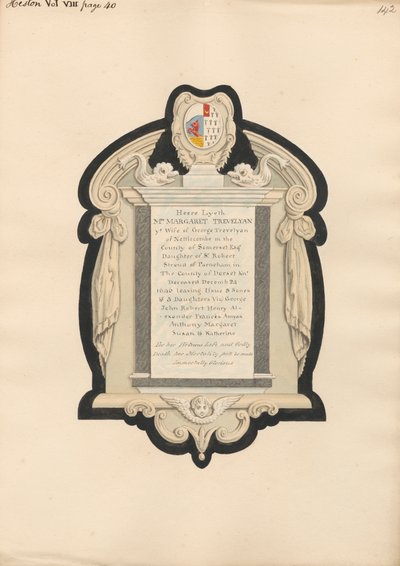 Heston Vol VIII page 40
142
Heere Lyeth
Mrs MARGARET TREVELYAN
ye Wife of George Trevelyan
of Nettlecombe in the
County of Somerset Esqr
Daughter of Sr Robert
Stroud of Parneham in
The County of Dorset Knt
Deceased Decemb
leaving Issue 5 Sones
& Daughters Viz George
John Robert Henry Al-
exander Frances Amyas
Anthony Margaret
Susan & Katherine
life and Godly
Death her Mortality put is made
immortally Glorious